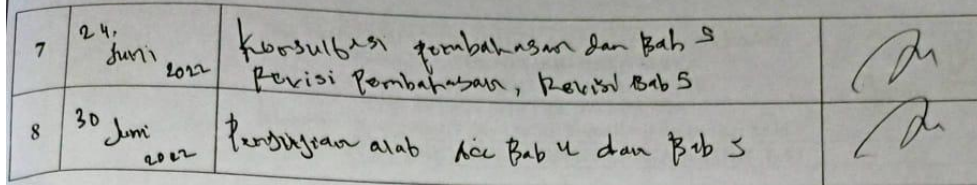 7 24, Juni 2022 Konsultasi pembahasan dan Bab 5
Revisi Pembahasan, Revisi Bab 5
8 30 Juni 2022 Pengujian alat Acc Bab 4 dan Bab 5